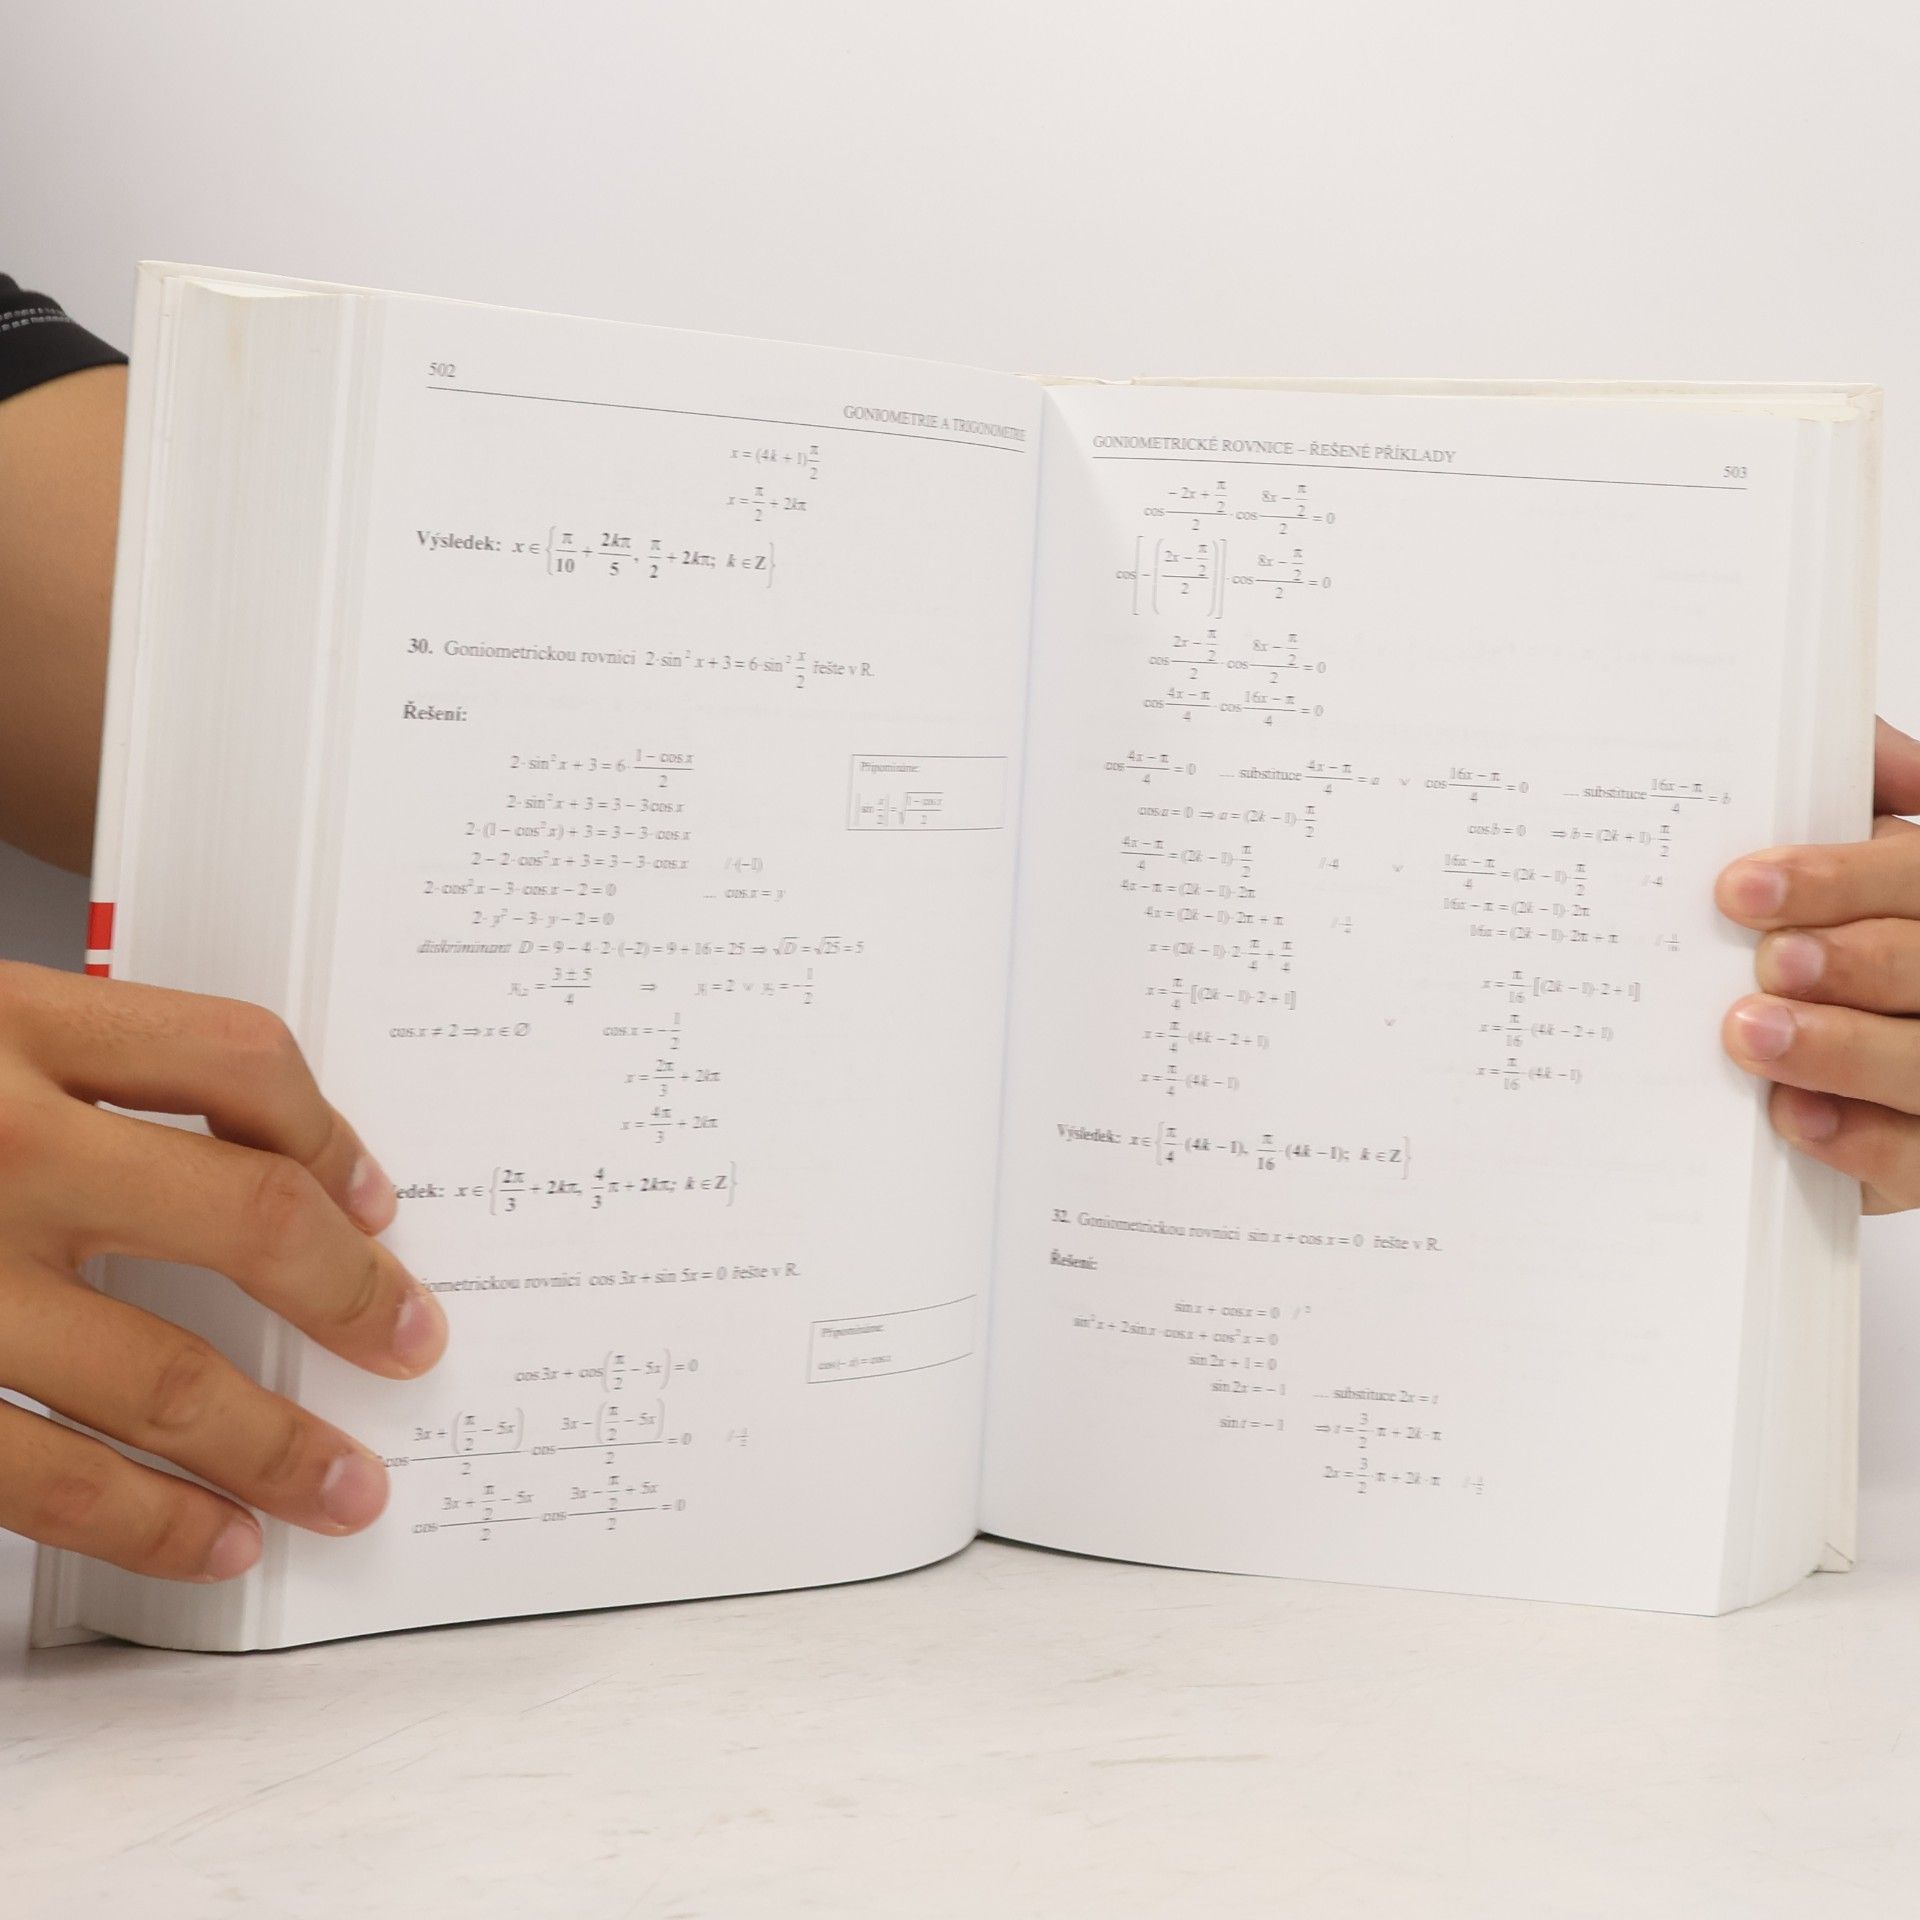 502
GONIOMETRIE A TRIGONOMETRIE
x = (4k + 1) π/2
x = π/2 + 2kπ
Výsledek: x ∈ {π/10 + 2kπ/5, π/2 + 2kπ; k ∈ Z}
30. Goniometrickou rovnici 2·sin² x + 3 = 6·sin² x/2 řešte v R.
Řešení:
2·sin² x + 3 = 6·(1 − cos x)/2
Připomínáme:
2·sin² x + 3 = 3 − 3cos x
|sin x/2| = √((1 − cos x)/2)
2·(1 − cos² x) + 3 = 3 − 3·cos x
2 − 2·cos² x + 3 = 3 − 3·cos x /·(−1)
2·cos² x − 3·cos x − 2 = 0 .... cos x = y
2·y² − 3·y − 2 = 0
diskriminant D = 9 − 4·2·(−2) = 9 + 16 = 25 ⇒ √D = √25 = 5
y₁,₂ = (3 ± 5)/4 ⇒ y₁ = 2 ∨ y₂ = −1/2
cos x ≠ 2 ⇒ x ∈ ∅ cos x = −1/2
x = 2π/3 + 2kπ
x = 4π/3 + 2kπ
edek: x ∈ {2π/3 + 2kπ, 4/3 π + 2kπ; k ∈ Z}
iometrickou rovnici cos 3x + sin 5x = 0 řešte v R.
Připomínáme:
cos(−x) = cos x
cos 3x + cos(π/2 − 5x) = 0
cos (3x + (π/2 − 5x))/2 · cos (3x − (π/2 − 5x))/2 = 0 /·1/2
cos (3x + π/2 − 5x)/2 · cos (3x − π/2 + 5x)/2 = 0
GONIOMETRICKÉ ROVNICE – ŘEŠENÉ PŘÍKLADY
503
cos (−2x + π/2)/2 · cos (8x − π/2)/2 = 0
cos[−((2x − π/2)/2)] · cos (8x − π/2)/2 = 0
cos (2x − π/2)/2 · cos (8x − π/2)/2 = 0
cos (4x − π)/4 · cos (16x − π)/4 = 0
cos (4x − π)/4 = 0 .... substituce (4x − π)/4 = a ∨ cos (16x − π)/4 = 0 .... substituce (16x − π)/4 = b
cos a = 0 ⇒ a = (2k − 1)·π/2 cos b = 0 ⇒ b = (2k + 1)·π/2
(4x − π)/4 = (2k − 1)·π/2 /·4 ∨ (16x − π)/4 = (2k − 1)·π/2 /·4
4x − π = (2k − 1)·2π 16x − π = (2k − 1)·2π
4x = (2k − 1)·2π + π /·1/4 16x = (2k − 1)·2π + π /·1/16
x = (2k − 1)·2·π/4 + π/4
x = π/4·[(2k − 1)·2 + 1] x = π/16·[(2k − 1)·2 + 1]
x = π/4·(4k − 2 + 1) ∨ x = π/16·(4k − 2 + 1)
x = π/4·(4k − 1) x = π/16·(4k − 1)
Výsledek: x ∈ {π/4·(4k − 1), π/16·(4k − 1); k ∈ Z}
32. Goniometrickou rovnici sin x + cos x = 0 řešte v R.
Řešení:
sin x + cos x = 0 /²
sin² x + 2sin x·cos x + cos² x = 0
sin 2x + 1 = 0
sin 2x = −1 .... substituce 2x = t
sin t = −1 ⇒ t = 3/2·π + 2k·π
2x = 3/2·π + 2k·π /·1/2